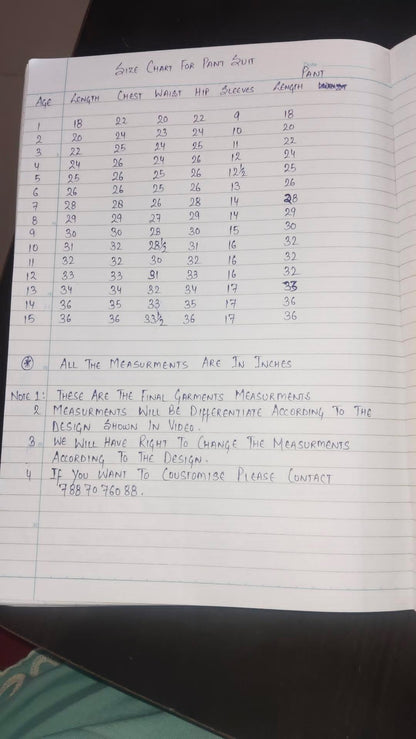 Size Chart For Pant Suit
Pant
Age Length Chest Waist Hip Sleeves Length
1 18 22 20 22 9 18
2 20 24 23 24 10 20
3 22 25 24 25 11 22
4 24 26 24 26 12 24
5 25 26 25 26 12½ 25
6 26 26 25 26 13 26
7 28 28 26 28 14 28
8 29 29 27 29 14 29
9 30 30 28 30 15 30
10 31 32 28½ 31 16 32
11 32 32 30 32 16 32
12 33 33 31 33 16 32
13 34 34 32 34 17 33
14 36 35 33 35 17 36
15 36 36 33½ 36 17 36
* All The Measurments Are In Inches
Note 1: These Are The Final Garments Measurments
2 Measurments Will Be Differentiate According To The
Design Shown In Video.
3 We Will Have Right To Change The Measurments
According To The Design.
4 If You Want To Coustomise Please Contact
7887076088.